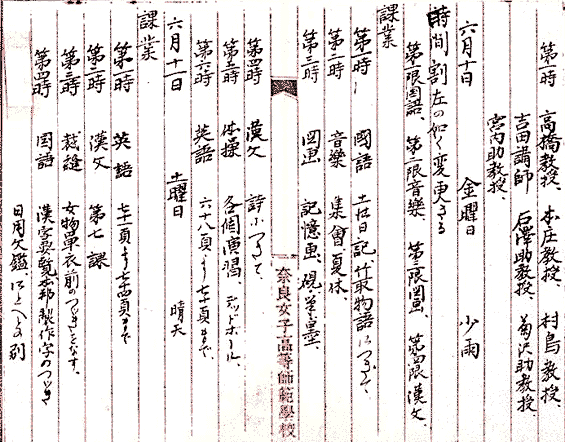 第一時 高橋教授、本庄教授、村島教授、
吉田講師 石澤助教授、菊沢助教授
宮内助教授、
六月十日 金曜日 少雨
時間割左の如く変更さる
第一限国語、第二限音樂、第三限圖画、第四限漢文、
課業
第一時 國語 土佐日記竹取物語につきて、
第二時 音樂 集會夏休、
第三時 圖画 記憶画、硯筆墨、
奈良女子高等師範學校
第四時 漢文 詩につきて、
第五時 体操 各個演習、デッドボール、
第六時 英語 六十八頁より七十一頁まで、
六月十一日 土曜日 晴天
課業
第一時 英語 七十一頁より七十四頁まで
第二時 漢文 第七課
第三時 裁縫 女物單衣前のつゞきをなす、
第四時 國語 漢字要覧本邦製作字のつゞき
日用文鑑